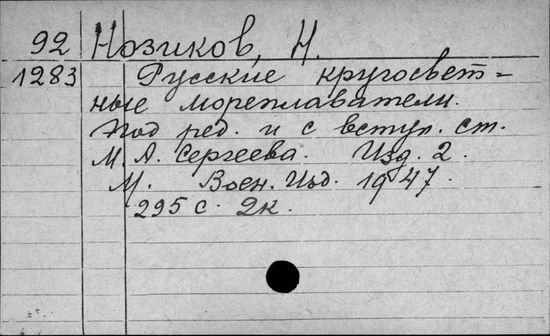 92 Нозиков, Н.
1283 Русские кругосвет-
ные мореплаватели.
Под ред. и с вступ. ст.
М. А. Сергеева. Изд. 2.
М. Воен. Изд. 1947.
295 с. 2к.